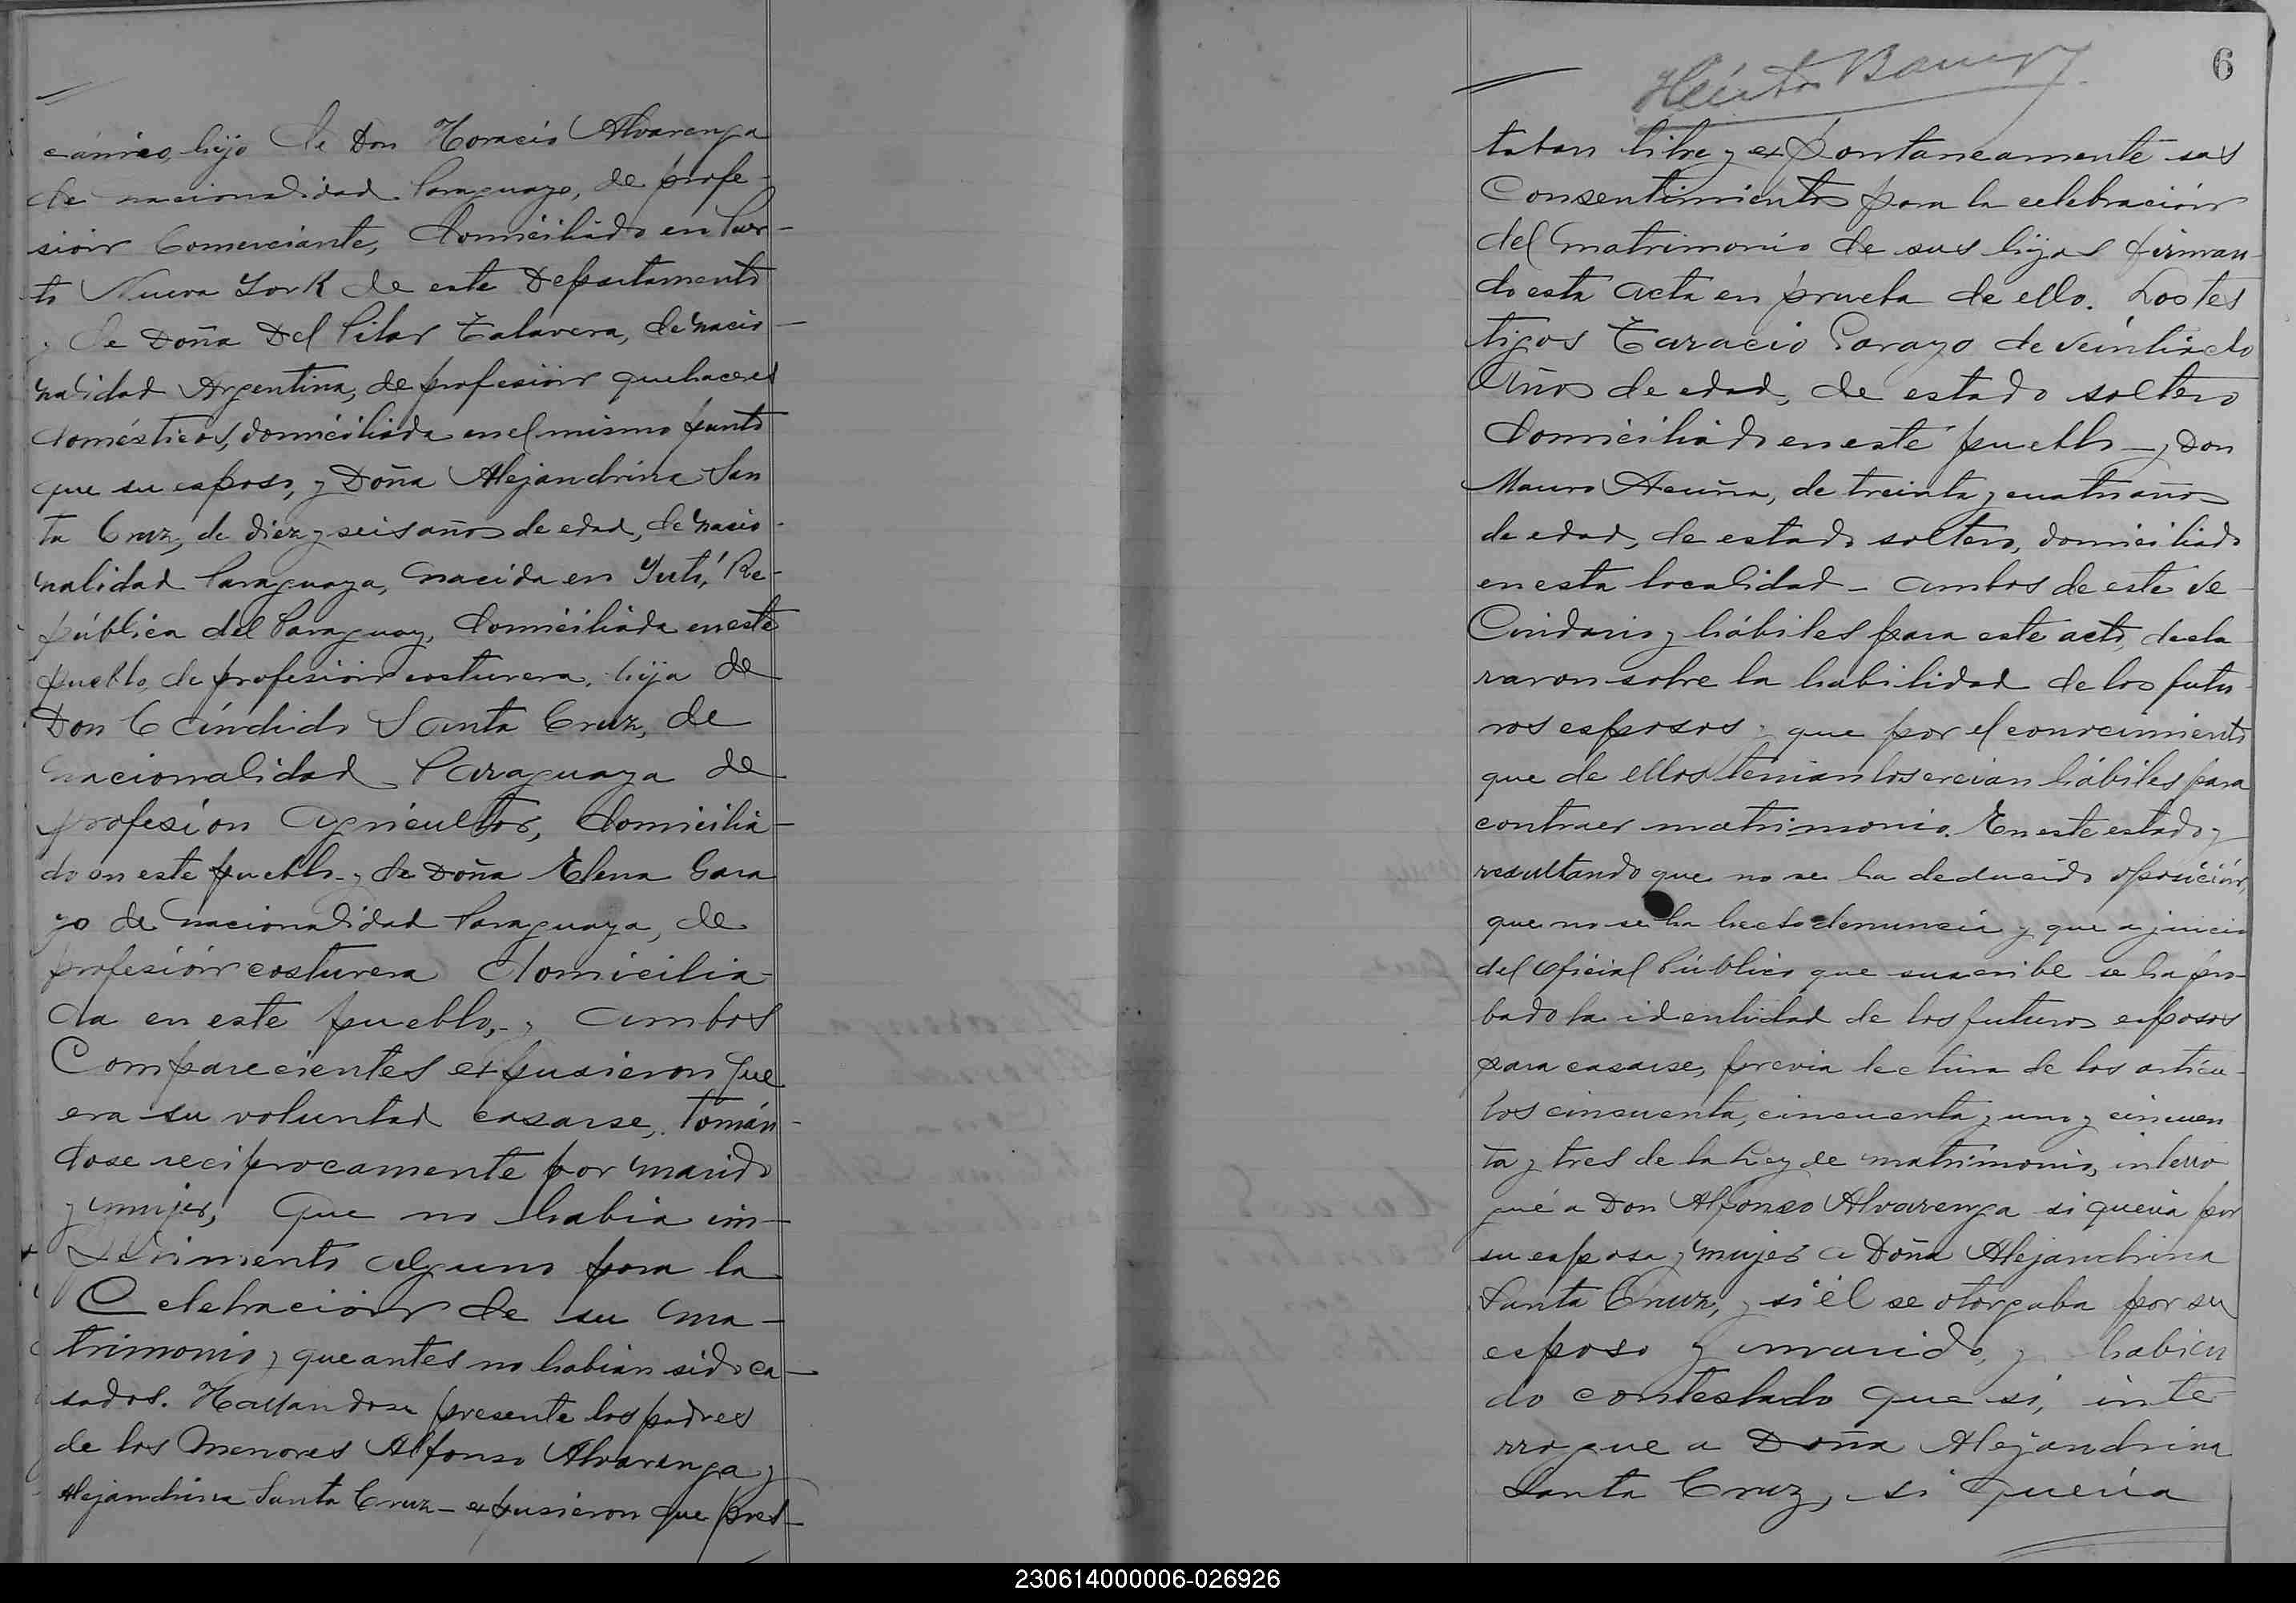 cánico, hijo de Don Horacio Alvarenga
de nacionalidad Paraguayo, de profe-
sión Comerciante, domiciliado en Puer-
to Nueva York de este Departamento
y de Doña Del Pilar Talavera, de nacio-
nalidad Argentina, de profesión quehaceres
domésticos, domiciliada en el mismo punto
que su esposo, y Doña Alejandrina San
ta Cruz, de diez y seis años de edad, de nacio-
nalidad Paraguaya, nacida en Yuti, Re-
pública del Paraguay, domiciliada en este
pueblo, de profesión costurera, hija de
Don Cándido Santa Cruz, de
nacionalidad Paraguaya de
profesión agricultor, domicilia-
do en este pueblo y de Doña Elena Gara
yo de nacionalidad Paraguaya, de
profesión costurera domicilia-
da en este pueblo, y ambos
Comparecientes expusieron que
era su voluntad casarse, tomán-
dose reciprocamente por marido
y mujer, que no habia im-
pedimento alguno para la
Celebración de su ma-
trimonio y que antes no habian sido ca-
sados. Hallandose presente los padres
de los menores Alfonso Alvarenga y
Alejandrina Santa Cruz - expusieron que pres-
6
Héctor
taban libre y expontaneamente sus
Consentimientos para la celebración
del matrimonio de sus hijos firman-
do esta acta en prueba de ello. Los tes
tigos Taracio Garayo de veintiocho
años de edad, de estado soltero
domiciliado en este pueblo - y Don
Mauro Acuña, de treinta y cuatro años
de edad, de estado soltero, domiciliado
en esta localidad - ambos de este ve-
cindario y hábiles para este acto, decla
raron sobre la habilidad de los futu-
ros esposos y que por el conocimiento
que de ellos tenian los creian hábiles para
contraer matrimonio. En este estado y
resultando que no se ha deducido oposición,
que no se ha hecho denuncia y que a juicio
del Oficial Público que suscribe se ha pro-
bado la identidad de los futuros esposos
para casarse, previa lectura de los articu-
los cincuenta, cincuenta y uno y cincuen
ta y tres de la Ley de matrimonio, interro
gué a Don Alfonso Alvarenga si queria por
su esposa y mujer a Doña Alejandrina
Santa Cruz, y si él se otorgaba por su
esposo y marido, y habien
do contestado que si, inte-
rrogue a Doña Alejandrina
Santa Cruz, si queria
230614000006-026926